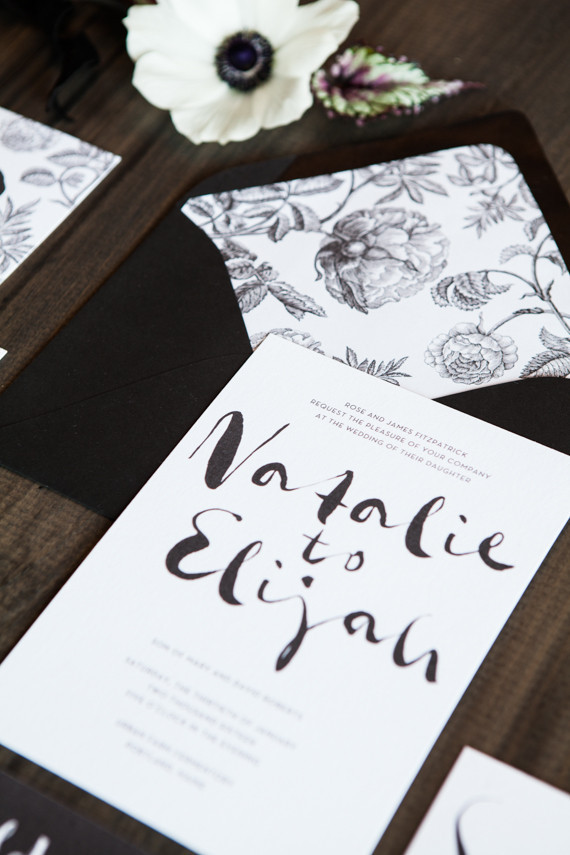 ROSE AND JAMES FITZPATRICK
REQUEST THE PLEASURE OF YOUR COMPANY
AT THE WEDDING OF THEIR DAUGHTER
Natalie
to
Elijah
SON OF MARY AND DAVID ROBERTS
SATURDAY, THE THIRTIETH OF JANUARY
TWO THOUSAND SIXTEEN
O'CLOCK IN THE EVENING
URBAN
PORTLAND,